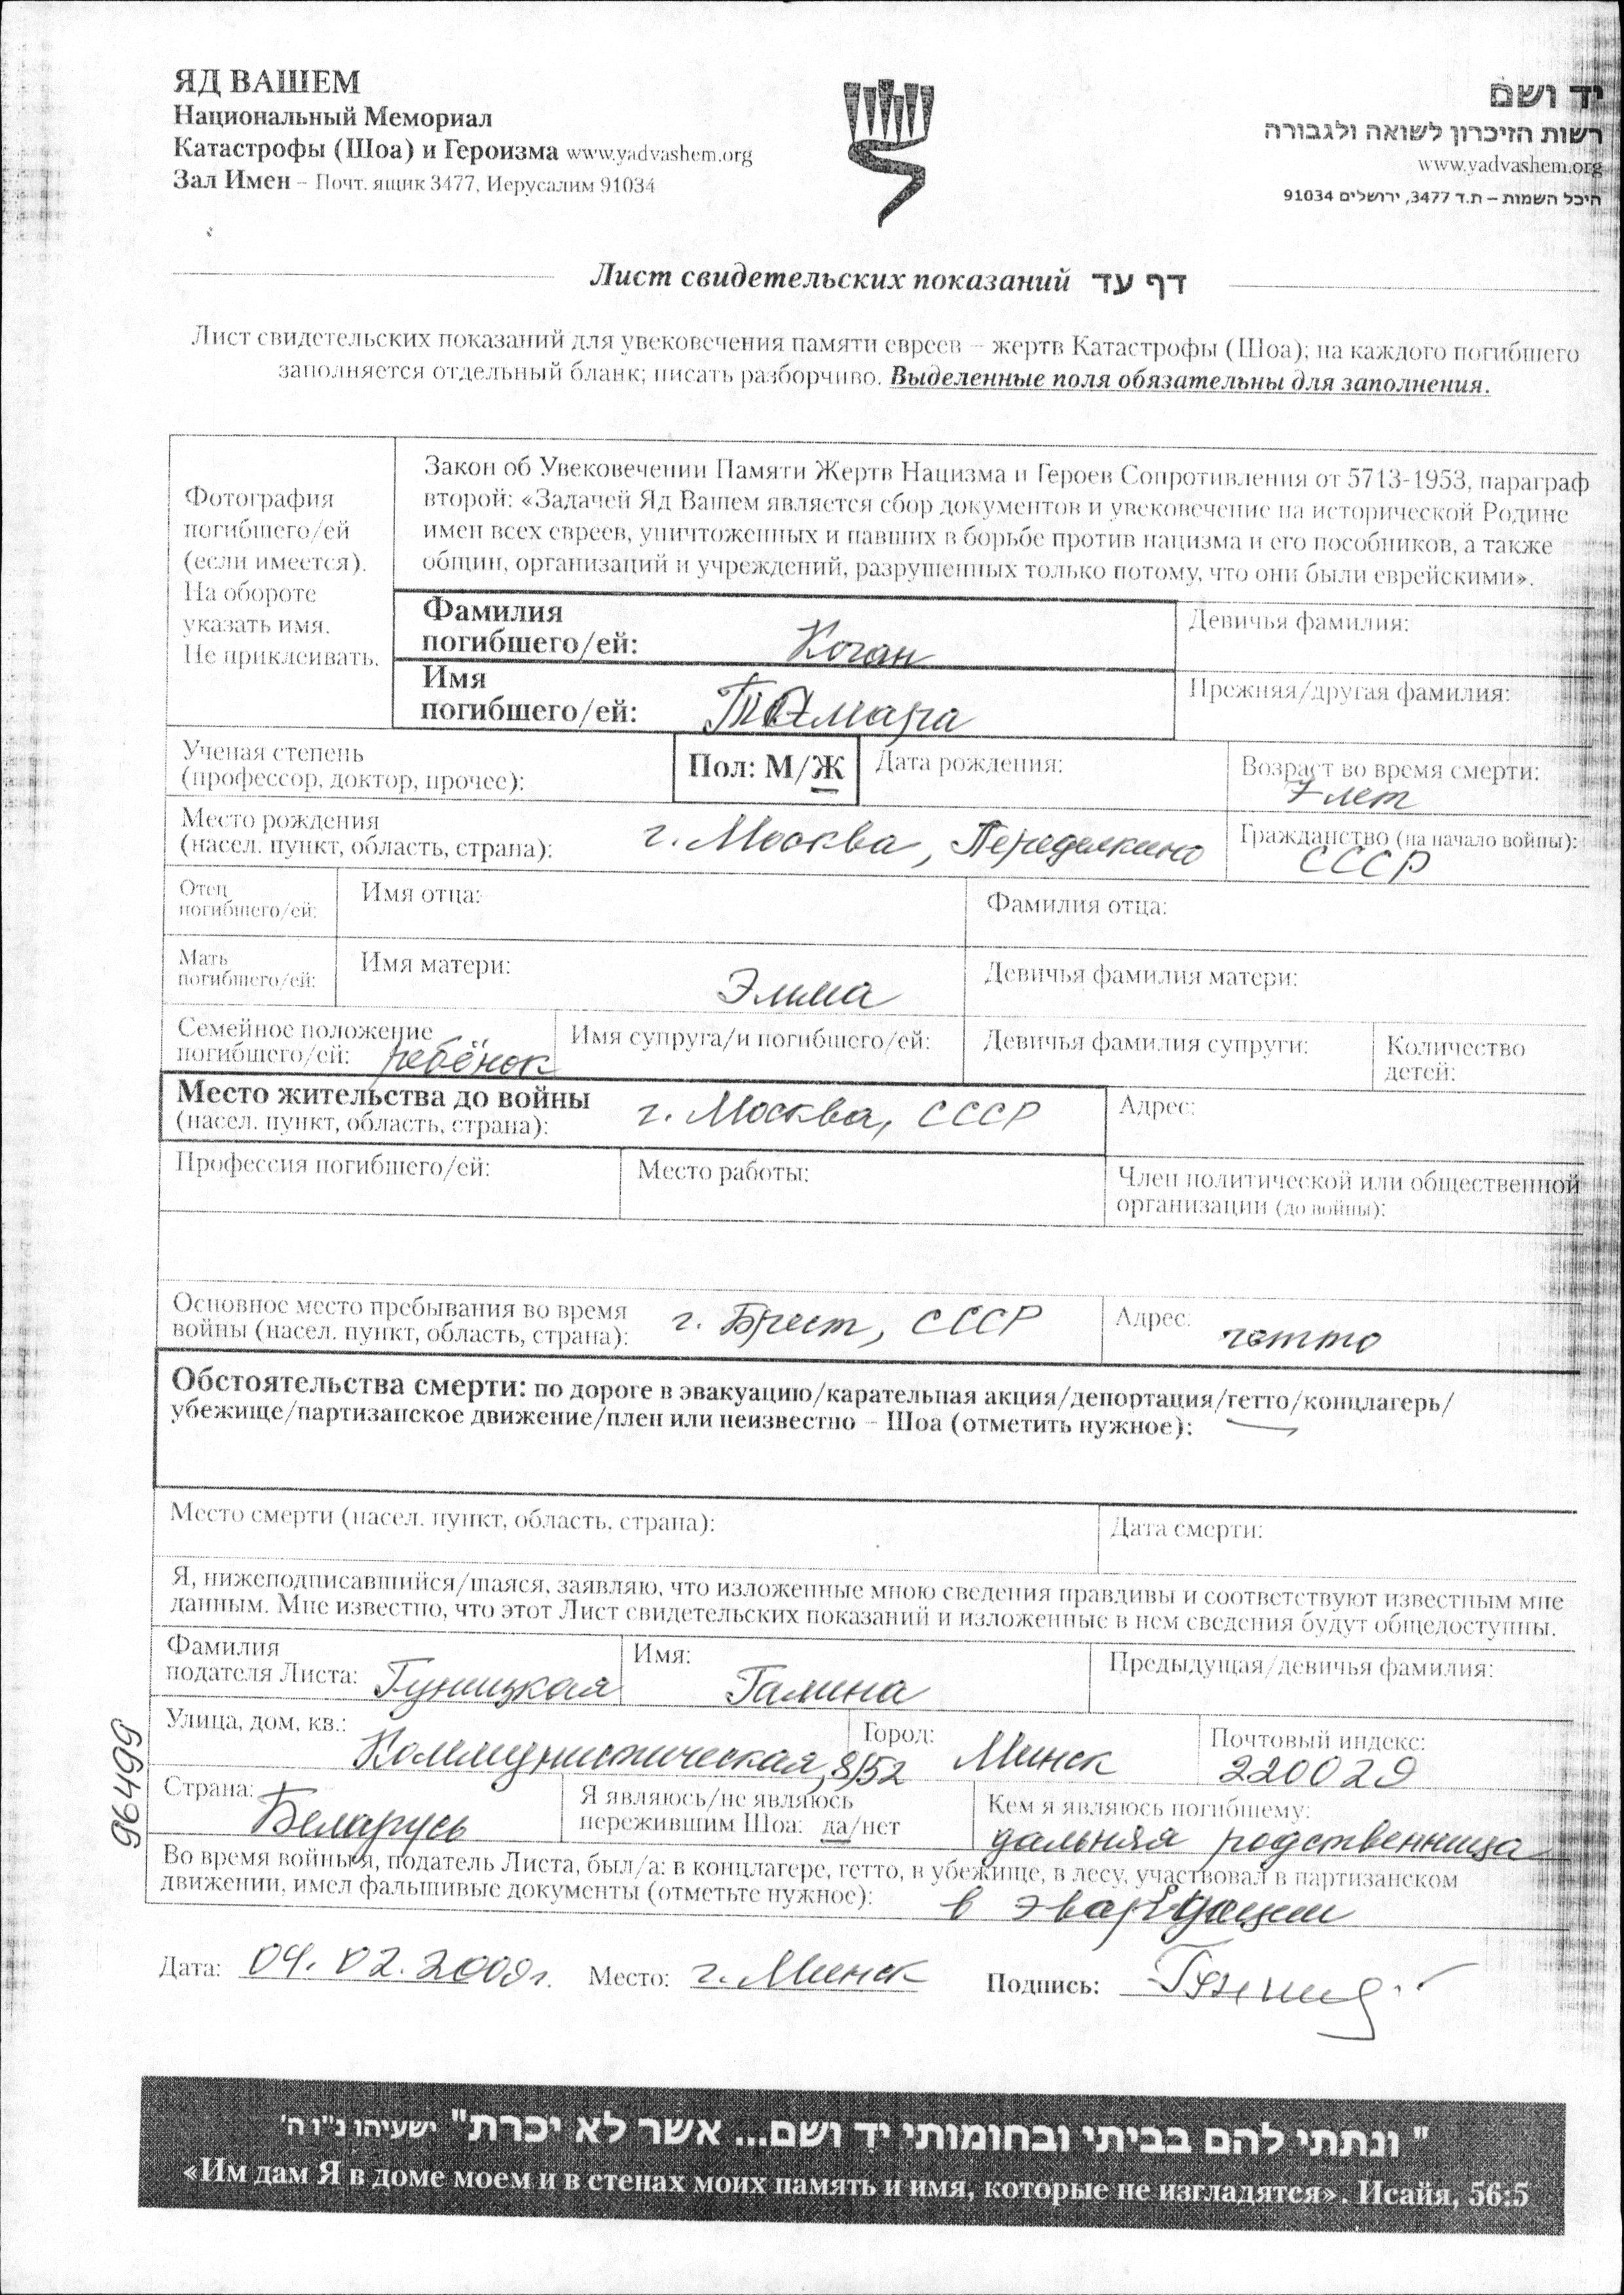 ЯД ВАШЕМ
Национальный Мемориал
Катастрофы (Шоа) и Героизма www.yadvashem.org
Зал Имен – Почт. ящик 3477, Иерусалим 91034
יד ושם
רשות הזיכרון לשואה ולגבורה
www.yadvashem.org
היכל השמות – ת.ד 3477, ירושלים 91034
Лист свидетельских показаний דף עד
Лист свидетельских показаний для увековечения памяти евреев – жертв Катастрофы (Шоа); на каждого погибшего
заполняется отдельный бланк; писать разборчиво. Выделенные поля обязательны для заполнения.
Фотография
погибшего/ей
(если имеется).
На обороте
указать имя.
Не приклеивать.
Закон об Увековечении Памяти Жертв Нацизма и Героев Сопротивления от 5713-1953, параграф
второй: «Задачей Яд Вашем является сбор документов и увековечение на исторической Родине
имен всех евреев, уничтоженных и павших в борьбе против нацизма и его пособников, а также
общин, организаций и учреждений, разрушенных только потому, что они были еврейскими».
Фамилия
погибшего/ей: Коган
Девичья фамилия:
Имя
погибшего/ей: Тамара
Прежняя/другая фамилия:
Ученая степень
(профессор, доктор, прочее):
Пол: М/Ж
Дата рождения:
Возраст во время смерти:
7 лет
Место рождения
(насел. пункт, область, страна): г. Москва, Переделкино
Гражданство (на начало войны):
СССР
Отец
погибшего/ей:
Имя отца:
Фамилия отца:
Мать
погибшего/ей:
Имя матери: Элма
Девичья фамилия матери:
Семейное положение
погибшего/ей: ребёнок
Имя супруга/и погибшего/ей:
Девичья фамилия супруги:
Количество
детей:
Место жительства до войны
(насел. пункт, область, страна): г. Москва, СССР
Адрес:
Профессия погибшего/ей:
Место работы:
Член политической или общественной
организации (до войны):
Основное место пребывания во время
войны (насел. пункт, область, страна): г. Брест, СССР
Адрес: гетто
Обстоятельства смерти: по дороге в эвакуацию/карательная акция/депортация/гетто/концлагерь/
убежище/партизанское движение/плен или неизвестно – Шоа (отметить нужное):
Место смерти (насел. пункт, область, страна):
Дата смерти:
Я, нижеподписавшийся/шаяся, заявляю, что изложенные мною сведения правдивы и соответствуют известным мне
данным. Мне известно, что этот Лист свидетельских показаний и изложенные в нем сведения будут общедоступны.
Фамилия
подателя Листа: Гуницкая
Имя: Галина
Предыдущая/девичья фамилия:
Улица, дом, кв.: Коммунистическая, 8/52
Город: Минск
Почтовый индекс:
220029
Страна: Беларусь
Я являюсь/не являюсь
пережившим Шоа: да/нет
Кем я являюсь погибшему:
дальняя родственница
Во время войны я, податель Листа, был/а: в концлагере, гетто, в убежище, в лесу, участвовал в партизанском
движении, имел фальшивые документы (отметьте нужное): в эвакуации
96499
Дата: 04.02.2009г. Место: г. Минск Подпись:
" ונתתי להם בביתי ובחומותי יד ושם... אשר לא יכרת" ישעיהו נ"ו ה'
«Им дам Я в доме моем и в стенах моих память и имя, которые не изгладятся». Исайя, 56:5